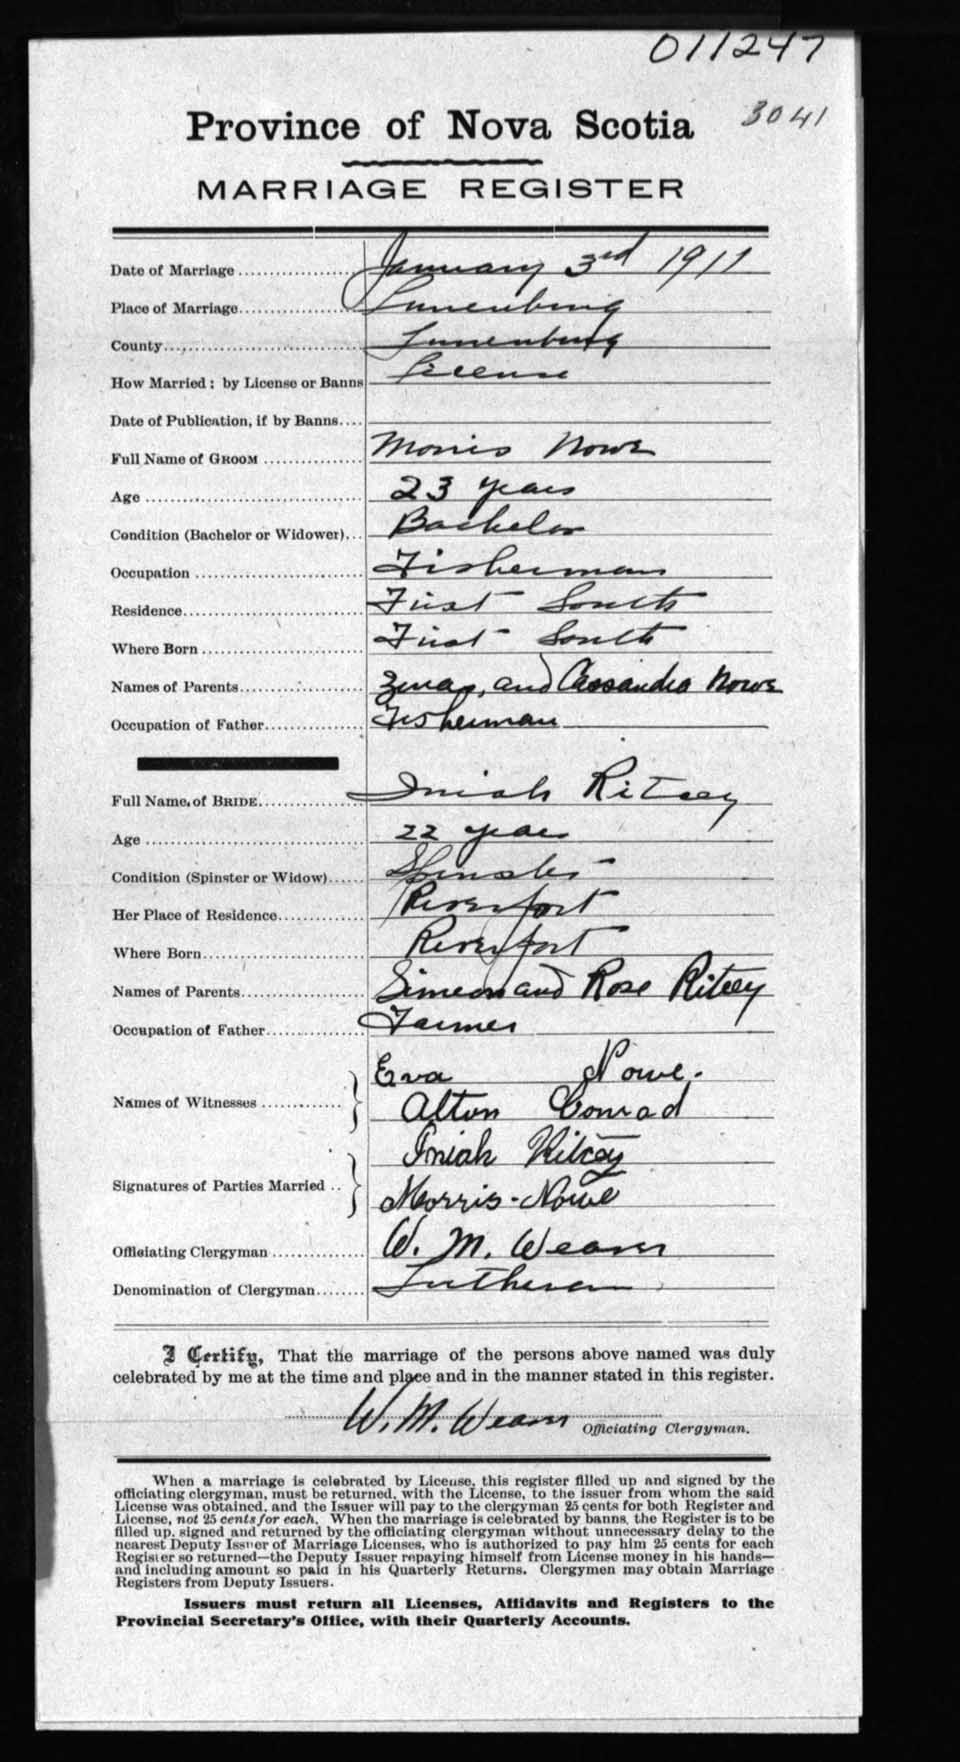 011247
3041
Province of Nova Scotia
MARRIAGE REGISTER
Date of Marriage January 3rd 1911
Place of Marriage Lunenburg
County Lunenburg
How Married: by License or Banns License
Date of Publication, if by Banns
Full Name of GROOM Morris Nowe
Age 23 years
Condition (Bachelor or Widower) Bachelor
Occupation Fisherman
Residence First South
Where Born First South
Names of Parents Zenas, and Cassandra Nowe
Occupation of Father Fisherman
Full Name of BRIDE Iniah Ritcey
Age 22 years
Condition (Spinster or Widow) Spinster
Her Place of Residence Riverport
Where Born Riverport
Names of Parents Simeon and Rose Ritcey
Occupation of Father Farmer
Names of Witnesses Eva Nowe.
Alton Conrad
Signatures of Parties Married Iniah Ritcey
Morris Nowe
Officiating Clergyman W. M. Weaver
Denomination of Clergyman Lutheran
I Certify, That the marriage of the persons above named was duly
celebrated by me at the time and place and in the manner stated in this register.
W. M. Weaver Officiating Clergyman.
When a marriage is celebrated by License, this register filled up and signed by the
officiating clergyman, must be returned, with the License, to the issuer from whom the said
License was obtained, and the Issuer will pay to the clergyman 25 cents for both Register and
License, not 25 cents for each. When the marriage is celebrated by banns, the Register is to be
filled up, signed and returned by the officiating clergyman without unnecessary delay to the
nearest Deputy Issuer of Marriage Licenses, who is authorized to pay him 25 cents for each
Register so returned—the Deputy Issuer repaying himself from License money in his hands—
and including amount so paid in his Quarterly Returns. Clergymen may obtain Marriage
Registers from Deputy Issuers.
Issuers must return all Licenses, Affidavits and Registers to the
Provincial Secretary's Office, with their Quarterly Accounts.